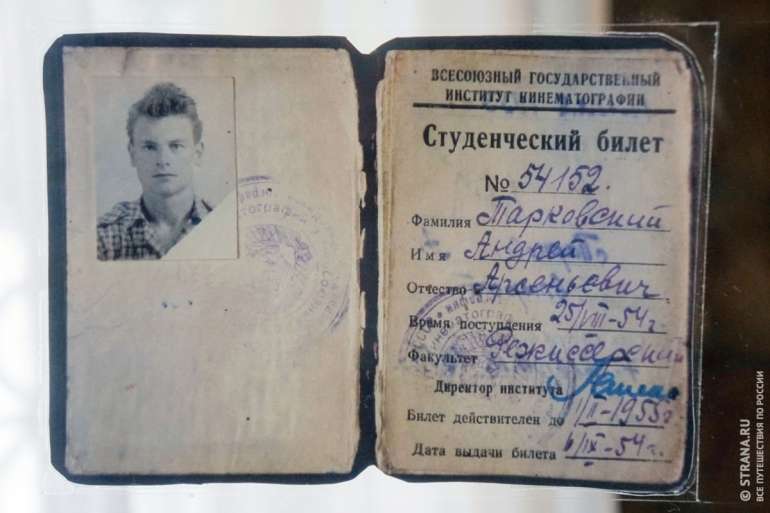 ВСЕСОЮЗНЫЙ ГОСУДАРСТВЕННЫЙ
ИНСТИТУТ КИНЕМАТОГРАФИИ
Студенческий билет
№ 54152.
Фамилия Тарковский
Имя Андрей
Отчество Арсеньович
Время поступления 25/VIII-54 г.
Факультет Режиссерский
Директор института
Билет действителен до 1/II-1955 г
Дата выдачи билета 6/IX-54 г.
© STRANA.RU
ВСЕ ПУТЕШЕСТВИЯ ПО РОССИИ